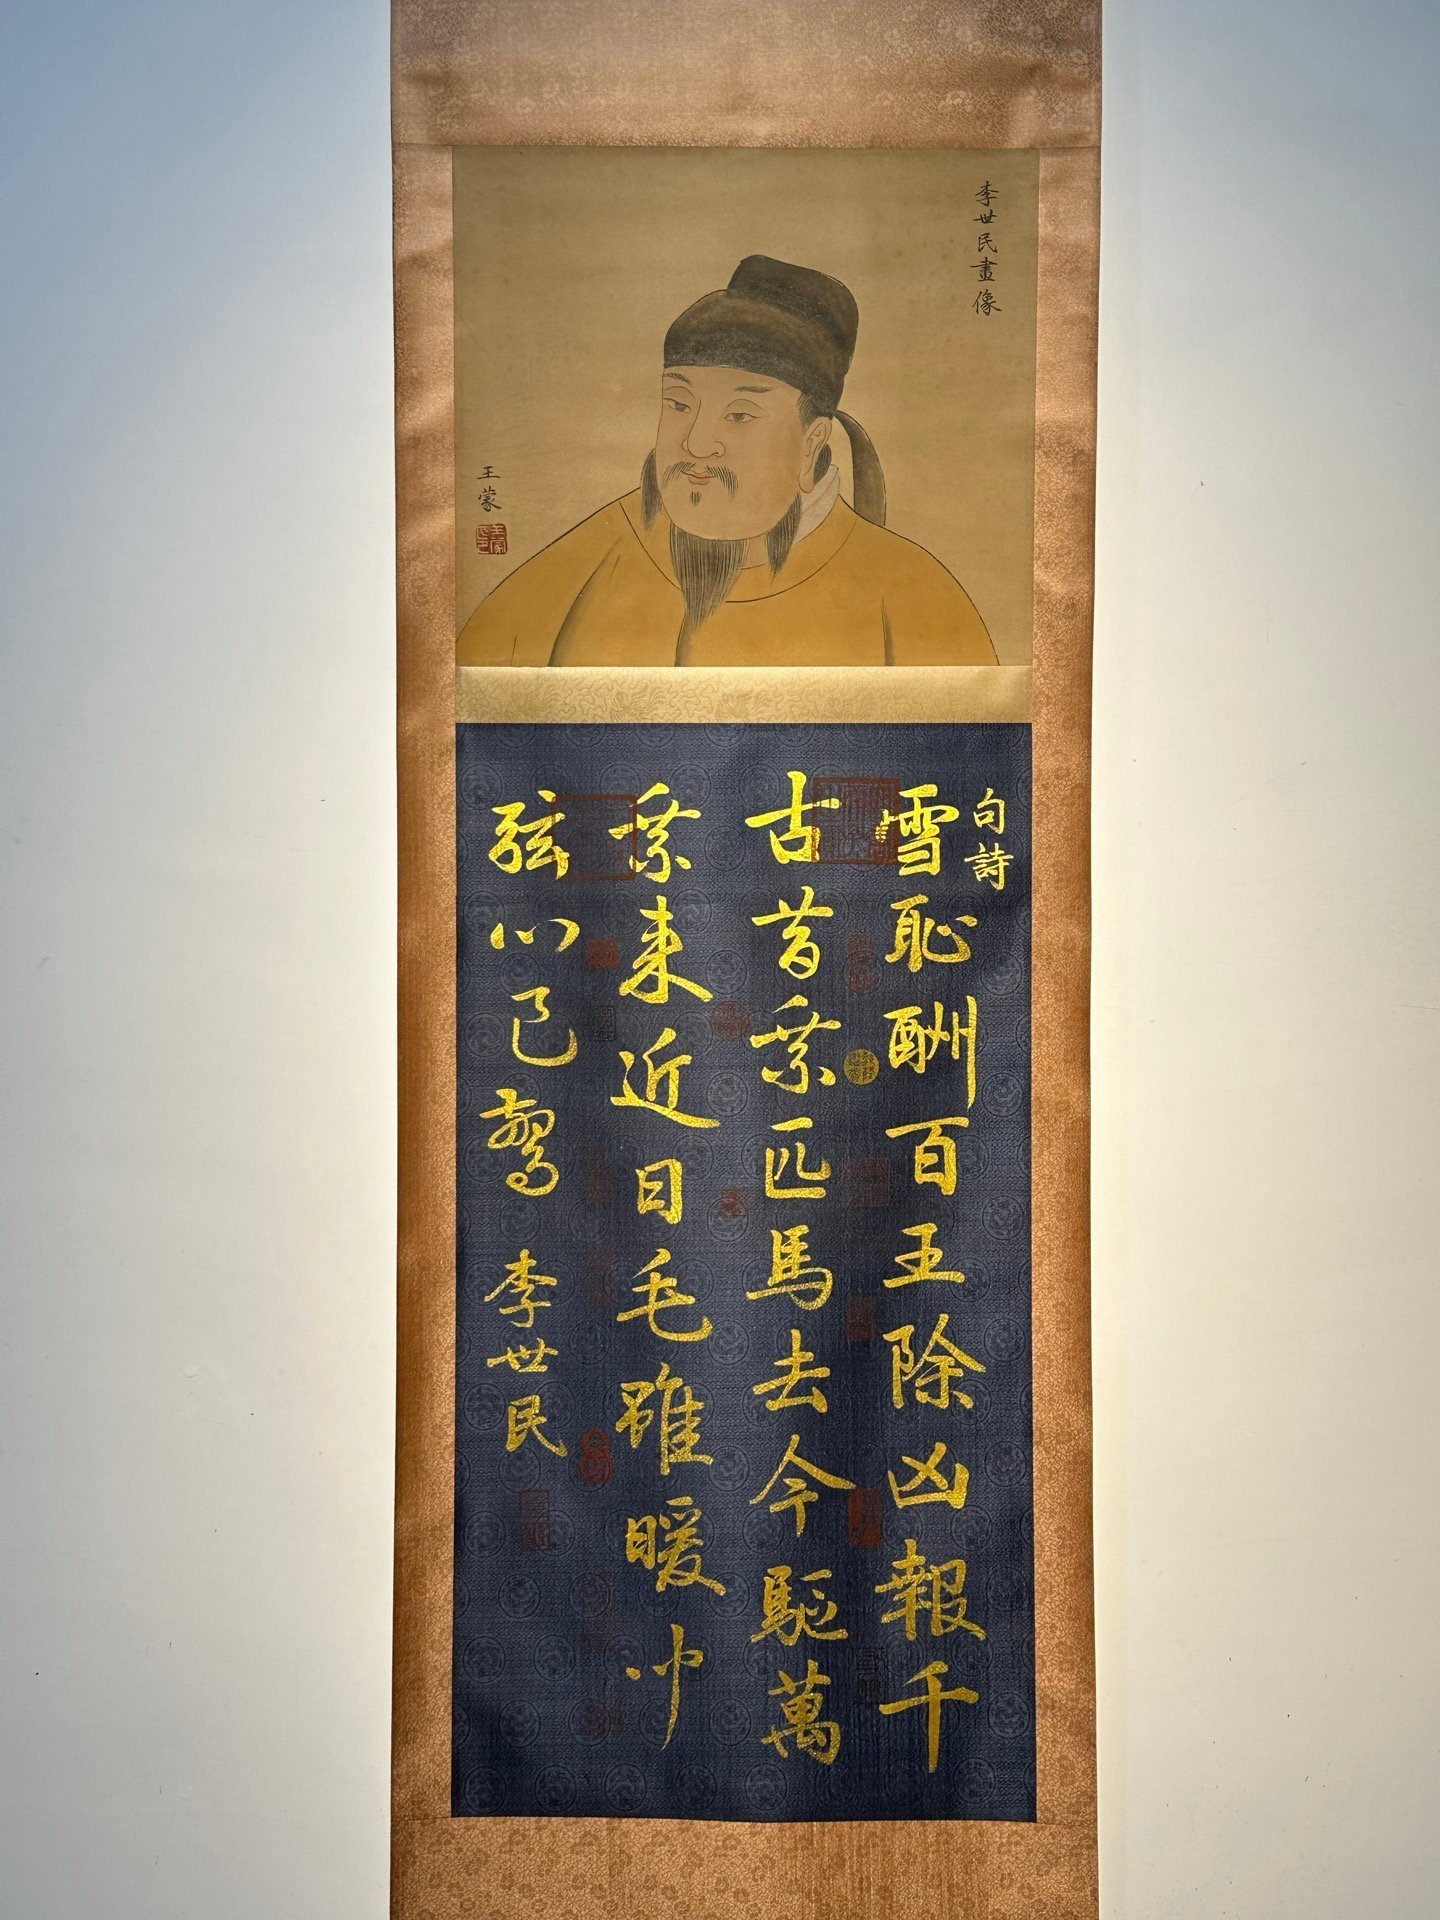 李世民畫像
王蒙
句詩
雪恥酬百王除凶報千
古昔乘匹馬去今驅萬
乘来近日毛雖暖
弦心已驚
李世民